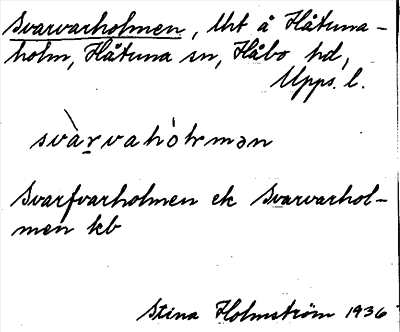 Svarvarholmen, Uht å Håtuna-
holm, Håtuna sn, Håbo hd,
Upps. l.
svàrvahòlmən
Svarfvarholmen ek Svarvarhol-
men kb
Stina Holmström 1936